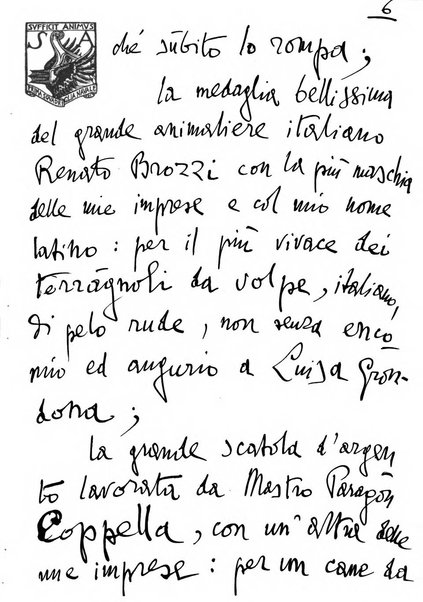 6
SVFFICIT ANIMVS
S A
ché sùbito lo rompa;
La medaglia bellissima
del grande animaliere italiano
Renato Brozzi con la più maschia
delle mie imprese e col mio nome
latino: per il più vivace dei
terràgnoli da volpe, italiano,
di pelo rude, non senza enco
mio ed augurio a Luisa Gron-
dona;
La grande scatola d'argen
to lavorata da Mastro Paragòn
Coppella, con un'altra delle
mie imprese: per un cane da